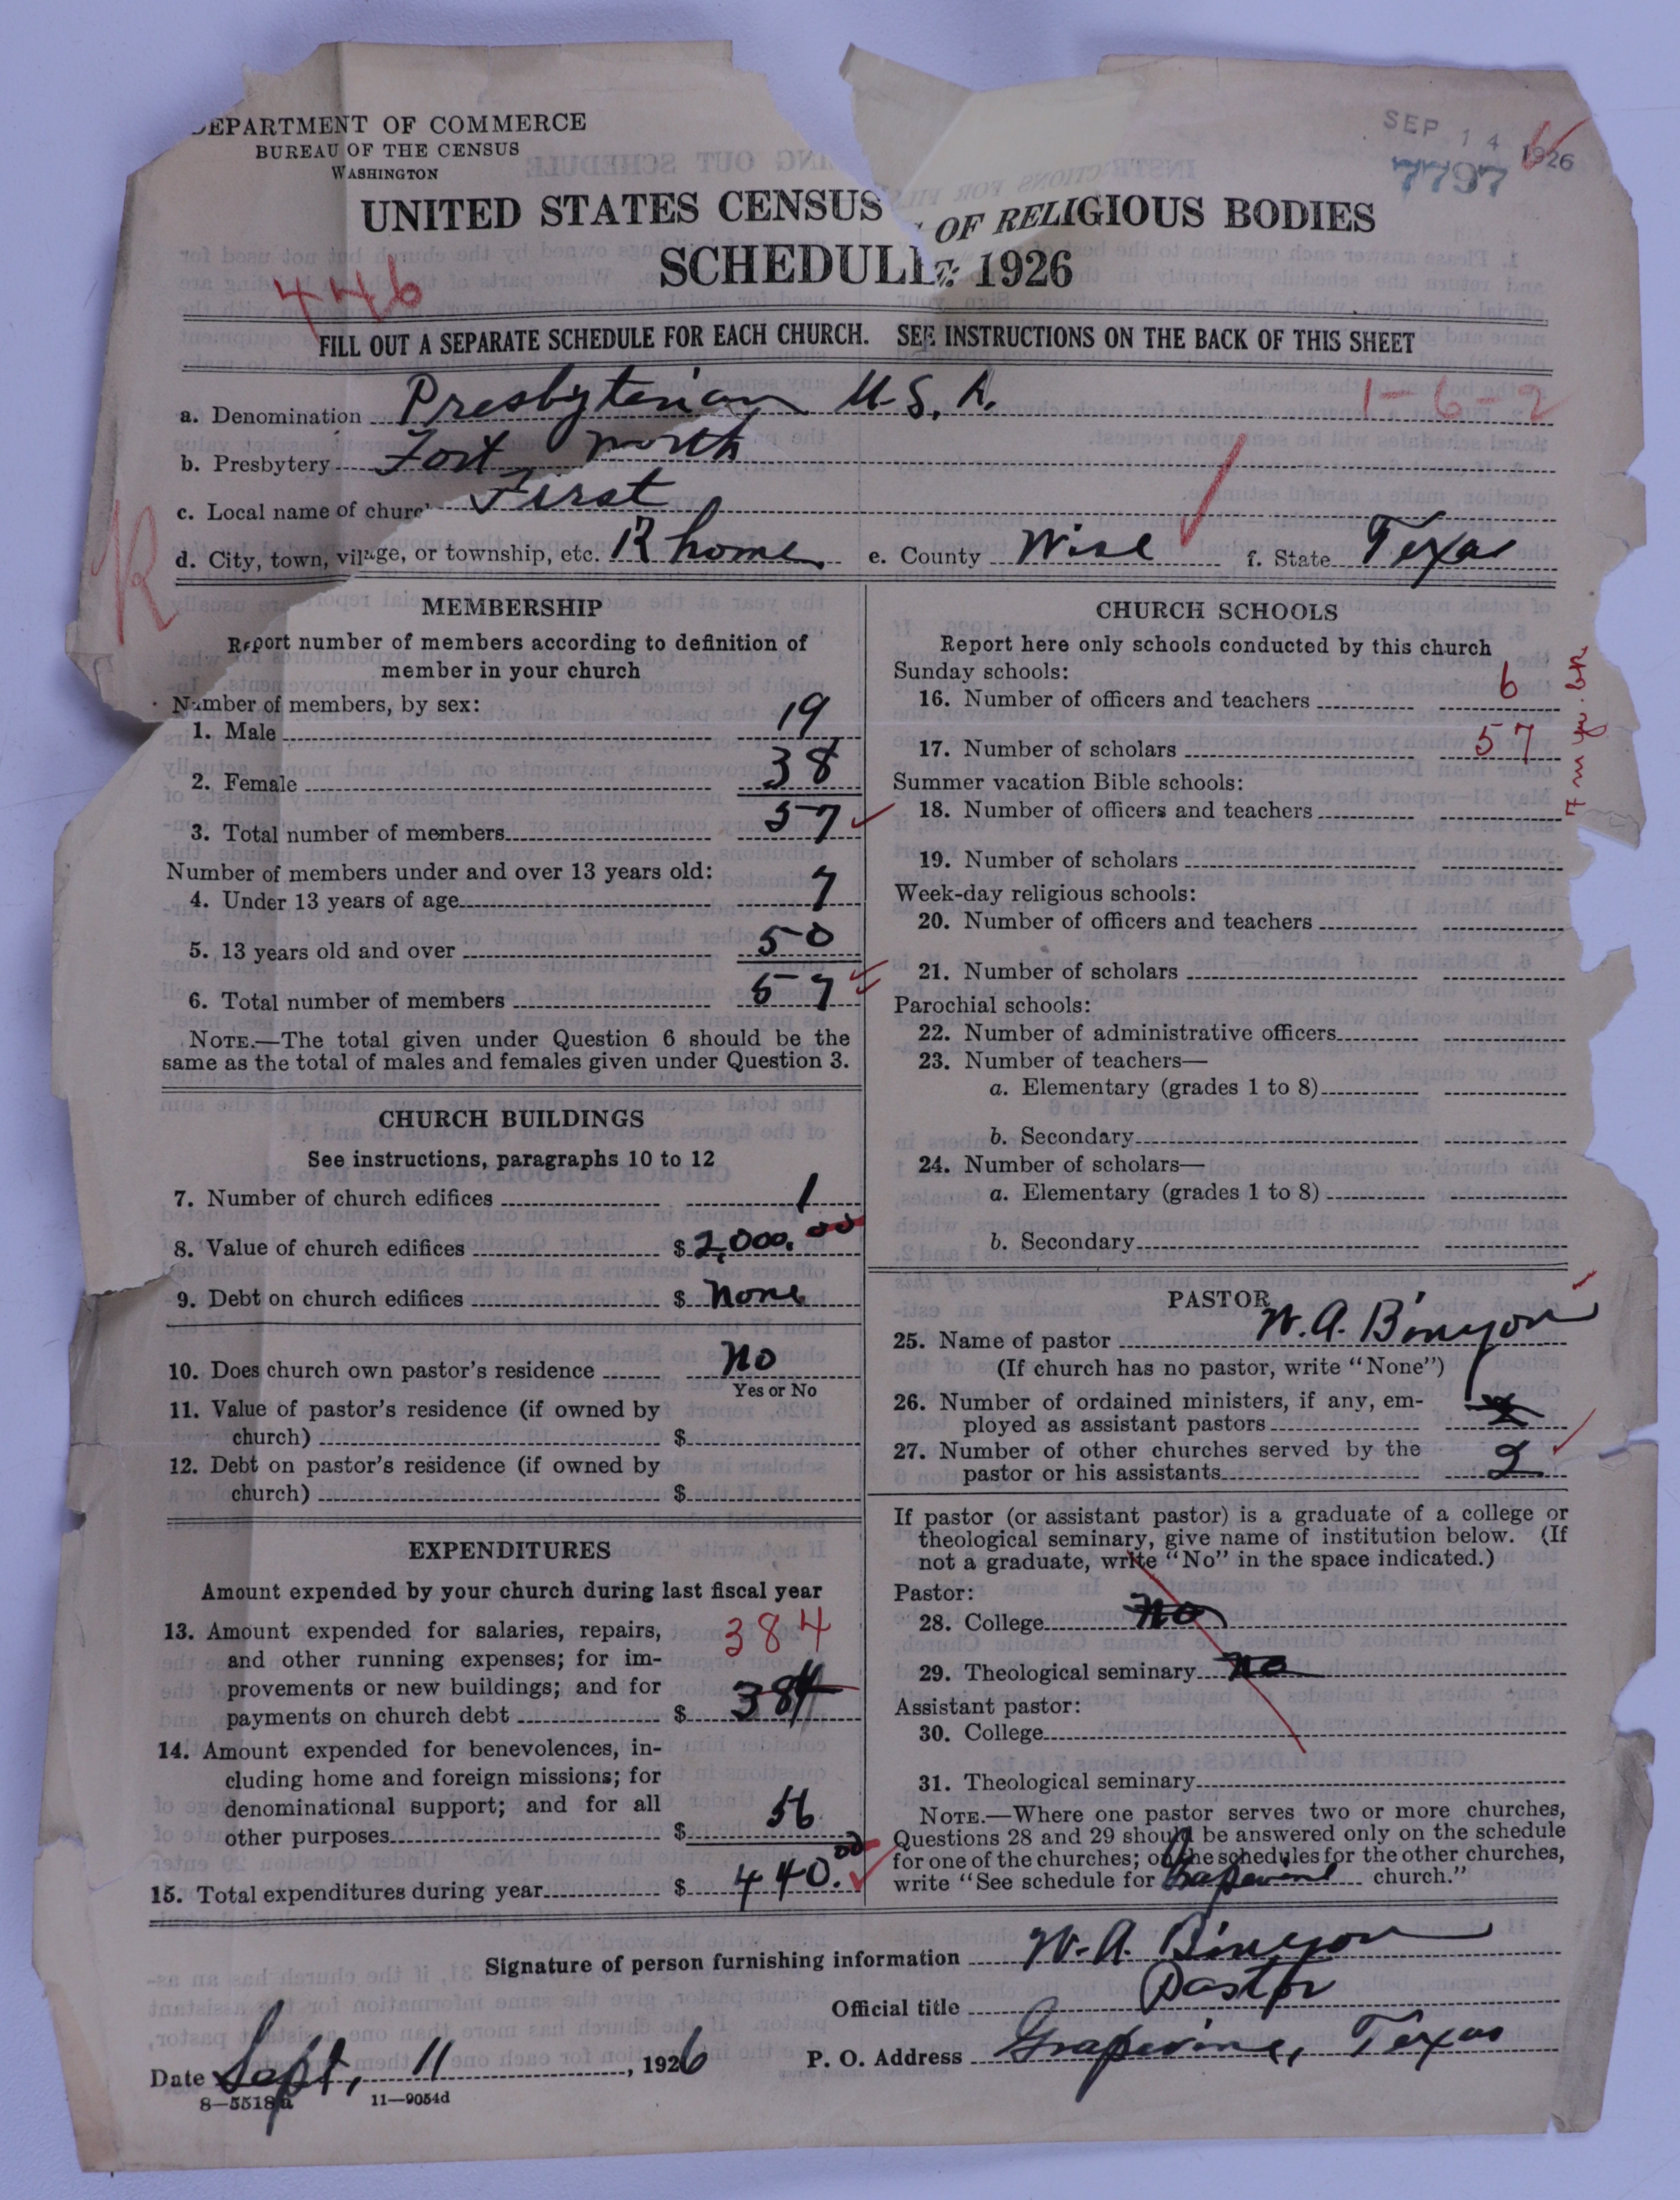 DEPARTMENT OF COMMERCE
BUREAU OF THE CENSUS
WASHINGTON
SEP 14 1926
7797
UNITED STATES CENSUS OF RELIGIOUS BODIES
SCHEDULE: 1926
446
FILL OUT A SEPARATE SCHEDULE FOR EACH CHURCH. SEE INSTRUCTIONS ON THE BACK OF THIS SHEET
1-6-2
a. Denomination Presbyterian U.S.A.
b. Presbytery Fort Worth
c. Local name of church First
d. City, town, village, or township, etc. Rhome e. County Wise f. State Texas
R
MEMBERSHIP
Report number of members according to definition of
member in your church
Number of members, by sex:
1. Male 19
2. Female 38
3. Total number of members 57
Number of members under and over 13 years old:
4. Under 13 years of age 7
5. 13 years old and over 50
6. Total number of members 57
NOTE.—The total given under Question 6 should be the
same as the total of males and females given under Question 3.
CHURCH BUILDINGS
See instructions, paragraphs 10 to 12
7. Number of church edifices 1
8. Value of church edifices $2,000.00
9. Debt on church edifices $ None
10. Does church own pastor's residence No
Yes or No
11. Value of pastor's residence (if owned by
church) $
12. Debt on pastor's residence (if owned by
church) $
EXPENDITURES
Amount expended by your church during last fiscal year
13. Amount expended for salaries, repairs, 384
and other running expenses; for im-
provements or new buildings; and for
payments on church debt $ 384
14. Amount expended for benevolences, in-
cluding home and foreign missions; for
denominational support; and for all
other purposes $ 56
15. Total expenditures during year $ 440.00
CHURCH SCHOOLS
Report here only schools conducted by this church
Sunday schools:
16. Number of officers and teachers 6
17. Number of scholars 57
Summer vacation Bible schools:
18. Number of officers and teachers
19. Number of scholars
Week-day religious schools:
20. Number of officers and teachers
21. Number of scholars
Parochial schools:
22. Number of administrative officers
23. Number of teachers—
a. Elementary (grades 1 to 8)
b. Secondary
24. Number of scholars—
a. Elementary (grades 1 to 8)
b. Secondary
PASTOR
25. Name of pastor W. A. Binyon
(If church has no pastor, write "None")
26. Number of ordained ministers, if any, em-
ployed as assistant pastors
27. Number of other churches served by the
pastor or his assistants 2
If pastor (or assistant pastor) is a graduate of a college or
theological seminary, give name of institution below. (If
not a graduate, write "No" in the space indicated.)
Pastor:
28. College No
29. Theological seminary No
Assistant pastor:
30. College
31. Theological seminary
NOTE.—Where one pastor serves two or more churches,
Questions 28 and 29 should be answered only on the schedule
for one of the churches; on the schedules for the other churches,
write "See schedule for Grapevine church."
Signature of person furnishing information W. A. Binyon
Official title Pastor
Date Sept. 11, 1926 P. O. Address Grapevine, Texas
8—5518a 11—9054d